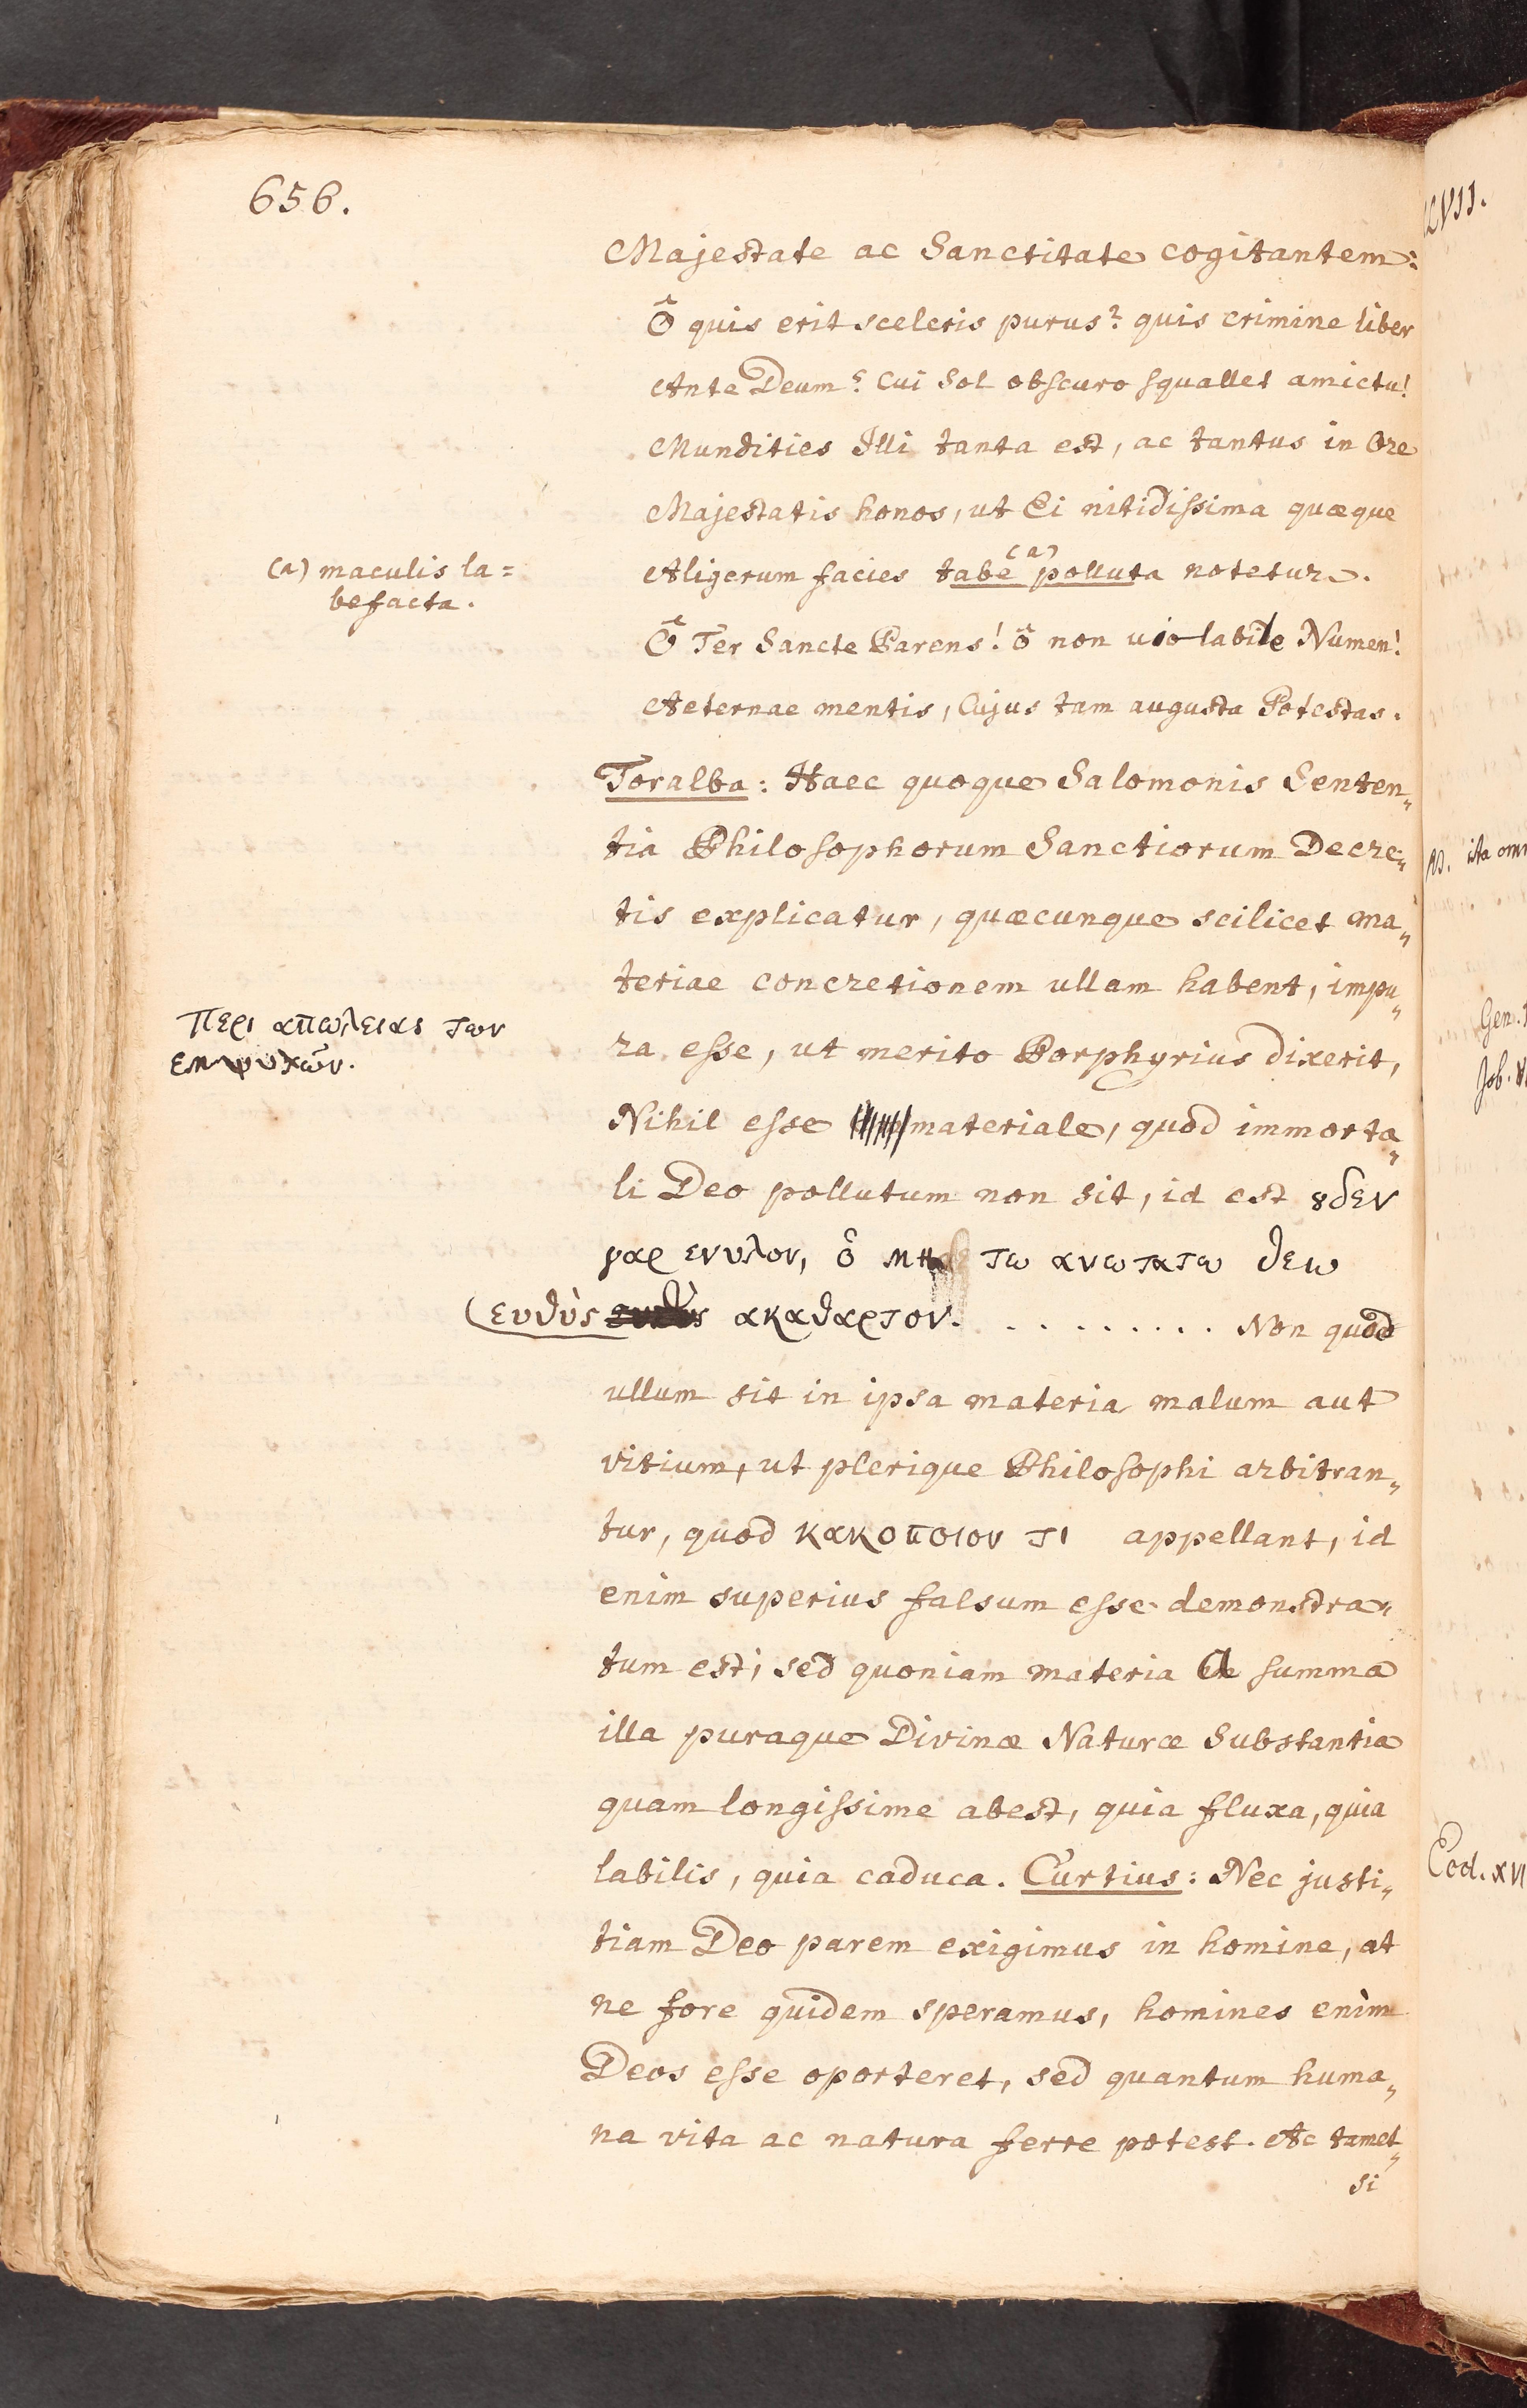 656.
Majestate ac Sanctitate cogitantem:
Ô quis erit sceleris purus? quis crimine liber
Ante Deum? Cui Sol obscuro squallet amictu!
Mundities Illi tanta est, ac tantus in Ore
Majestatis honos, ut Ei nitidissima quæque
(a)
Aligerum facies tabe polluta notetur.
(a) maculis la=
befacta.
Ô Ter Sancte Parens! ô non violabile Numen!
Aeternae mentis, Cujus tam augusta Potestas.
Toralba: Haec quoque Salomonis Senten„
tia Philosophorum Sanctiorum Decre„
tis explicatur, quæcunque scilicet ma„
teriae concretionem ullam habent, impu„
Περι απωλειας των
εμψυχῶν.
ra esse, ut merito Porphyrius dixerit,
Nihil esse materiale, quod immorta„
li Deo pollutum non sit, id est ȣδεν
γαρ ενυλον, ὃ μη τω ανωτατω θεω
(ευθὺς ακαθαρτον. . . . . . . . . . Non quod
ullum sit in ipsa materia malum aut
vitium, ut plerique Philosophi arbitran„
tur, quod κακοποιον τι appellant, id
enim superius falsum esse demonstra„
tum est, sed quoniam materia a summa
illa puraque Divinæ Naturæ Substantia
quam longissime abest, quia fluxa, quia
labilis, quia caduca. Curtius: Nec justi„
tiam Deo parem exigimus in homine, at
ne fore quidem speramus, homines enim
Deos esse oporteret, sed quantum huma„
na vita ac natura ferre potest. Ac tamet„
si
ita om
Gen.
Job.